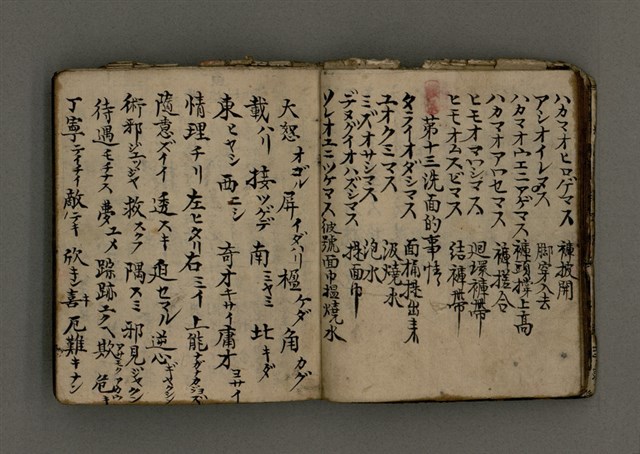 ハカマオヒロゲマス 褲披開
アシオイレマス 脚穿入去
ハカマオウエニアゲマス 褲頭撑上高
ハカマオアワセマス 褲搓合
ヒモオマワシマス 廻環褲帶
ヒモオムスビマス 結褲帶
第十三洗面的事情
タライオダシマス 面桶提出来
ユオクミマス 汲燒水
ミズオサシマス 泡水
デヌグイオハズシマス 提面巾
ソレオユニツケマス 彼號面巾搵燒水
大怒 オゴル 屏 イダハリ 極 ケダ 角 カグ
載ハリ 接ツゲデ 南ミナミ 北キダ
東ヒヤシ 西ニシ 奇オモサイ 庸オヨサイ
情理チリ 左ヒタリ 右ミイ 上能
隨意ズイイ 透スキ 迫セマル 逆心ギャクシン
術邪ジュツジャ 救スクウ 隅スミ 邪見ジャケン
待遇モテナス 夢ユメ 踪跡 欺 危
丁寧テイネイ 敵テキ 欣キン 喜キ 厄難ヤクナン